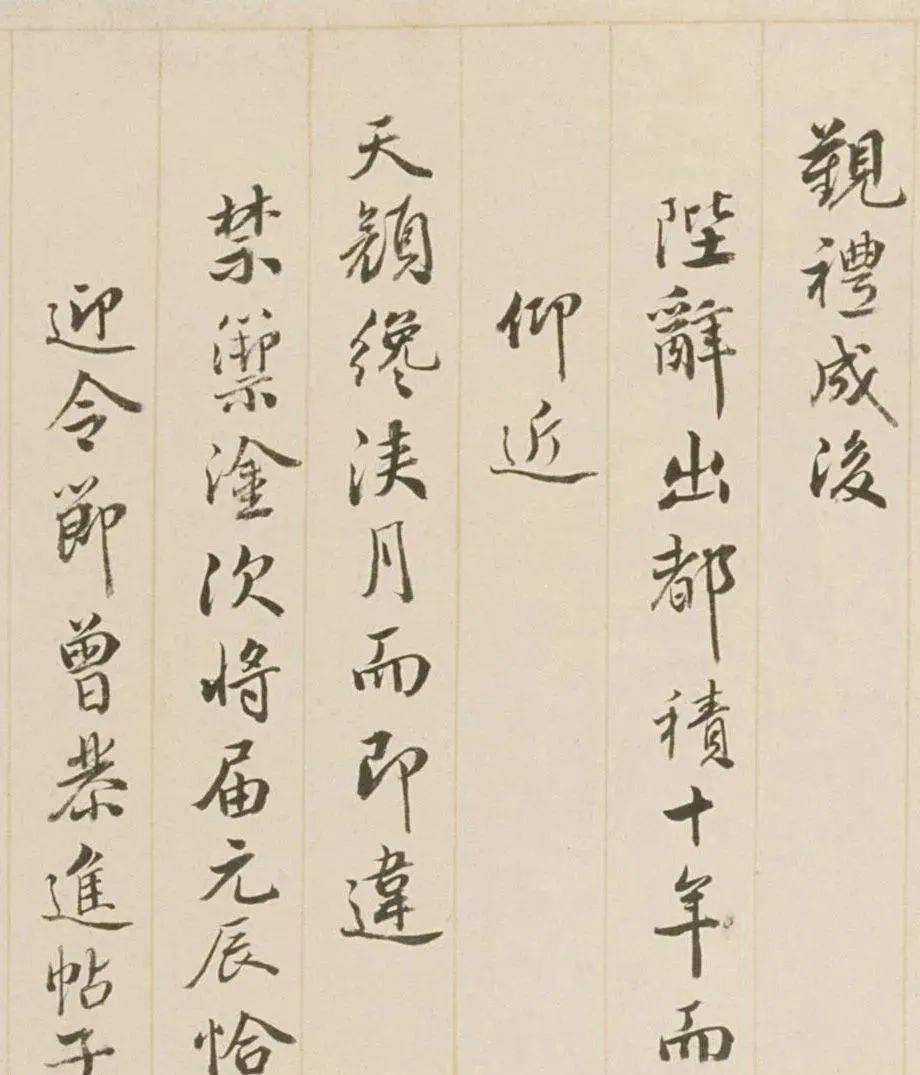 覲禮成後
陛辭出都積十年而
仰近
天顔纔浹月而即違
禁籞塗次將届元辰恰
迎令節曾恭進帖子